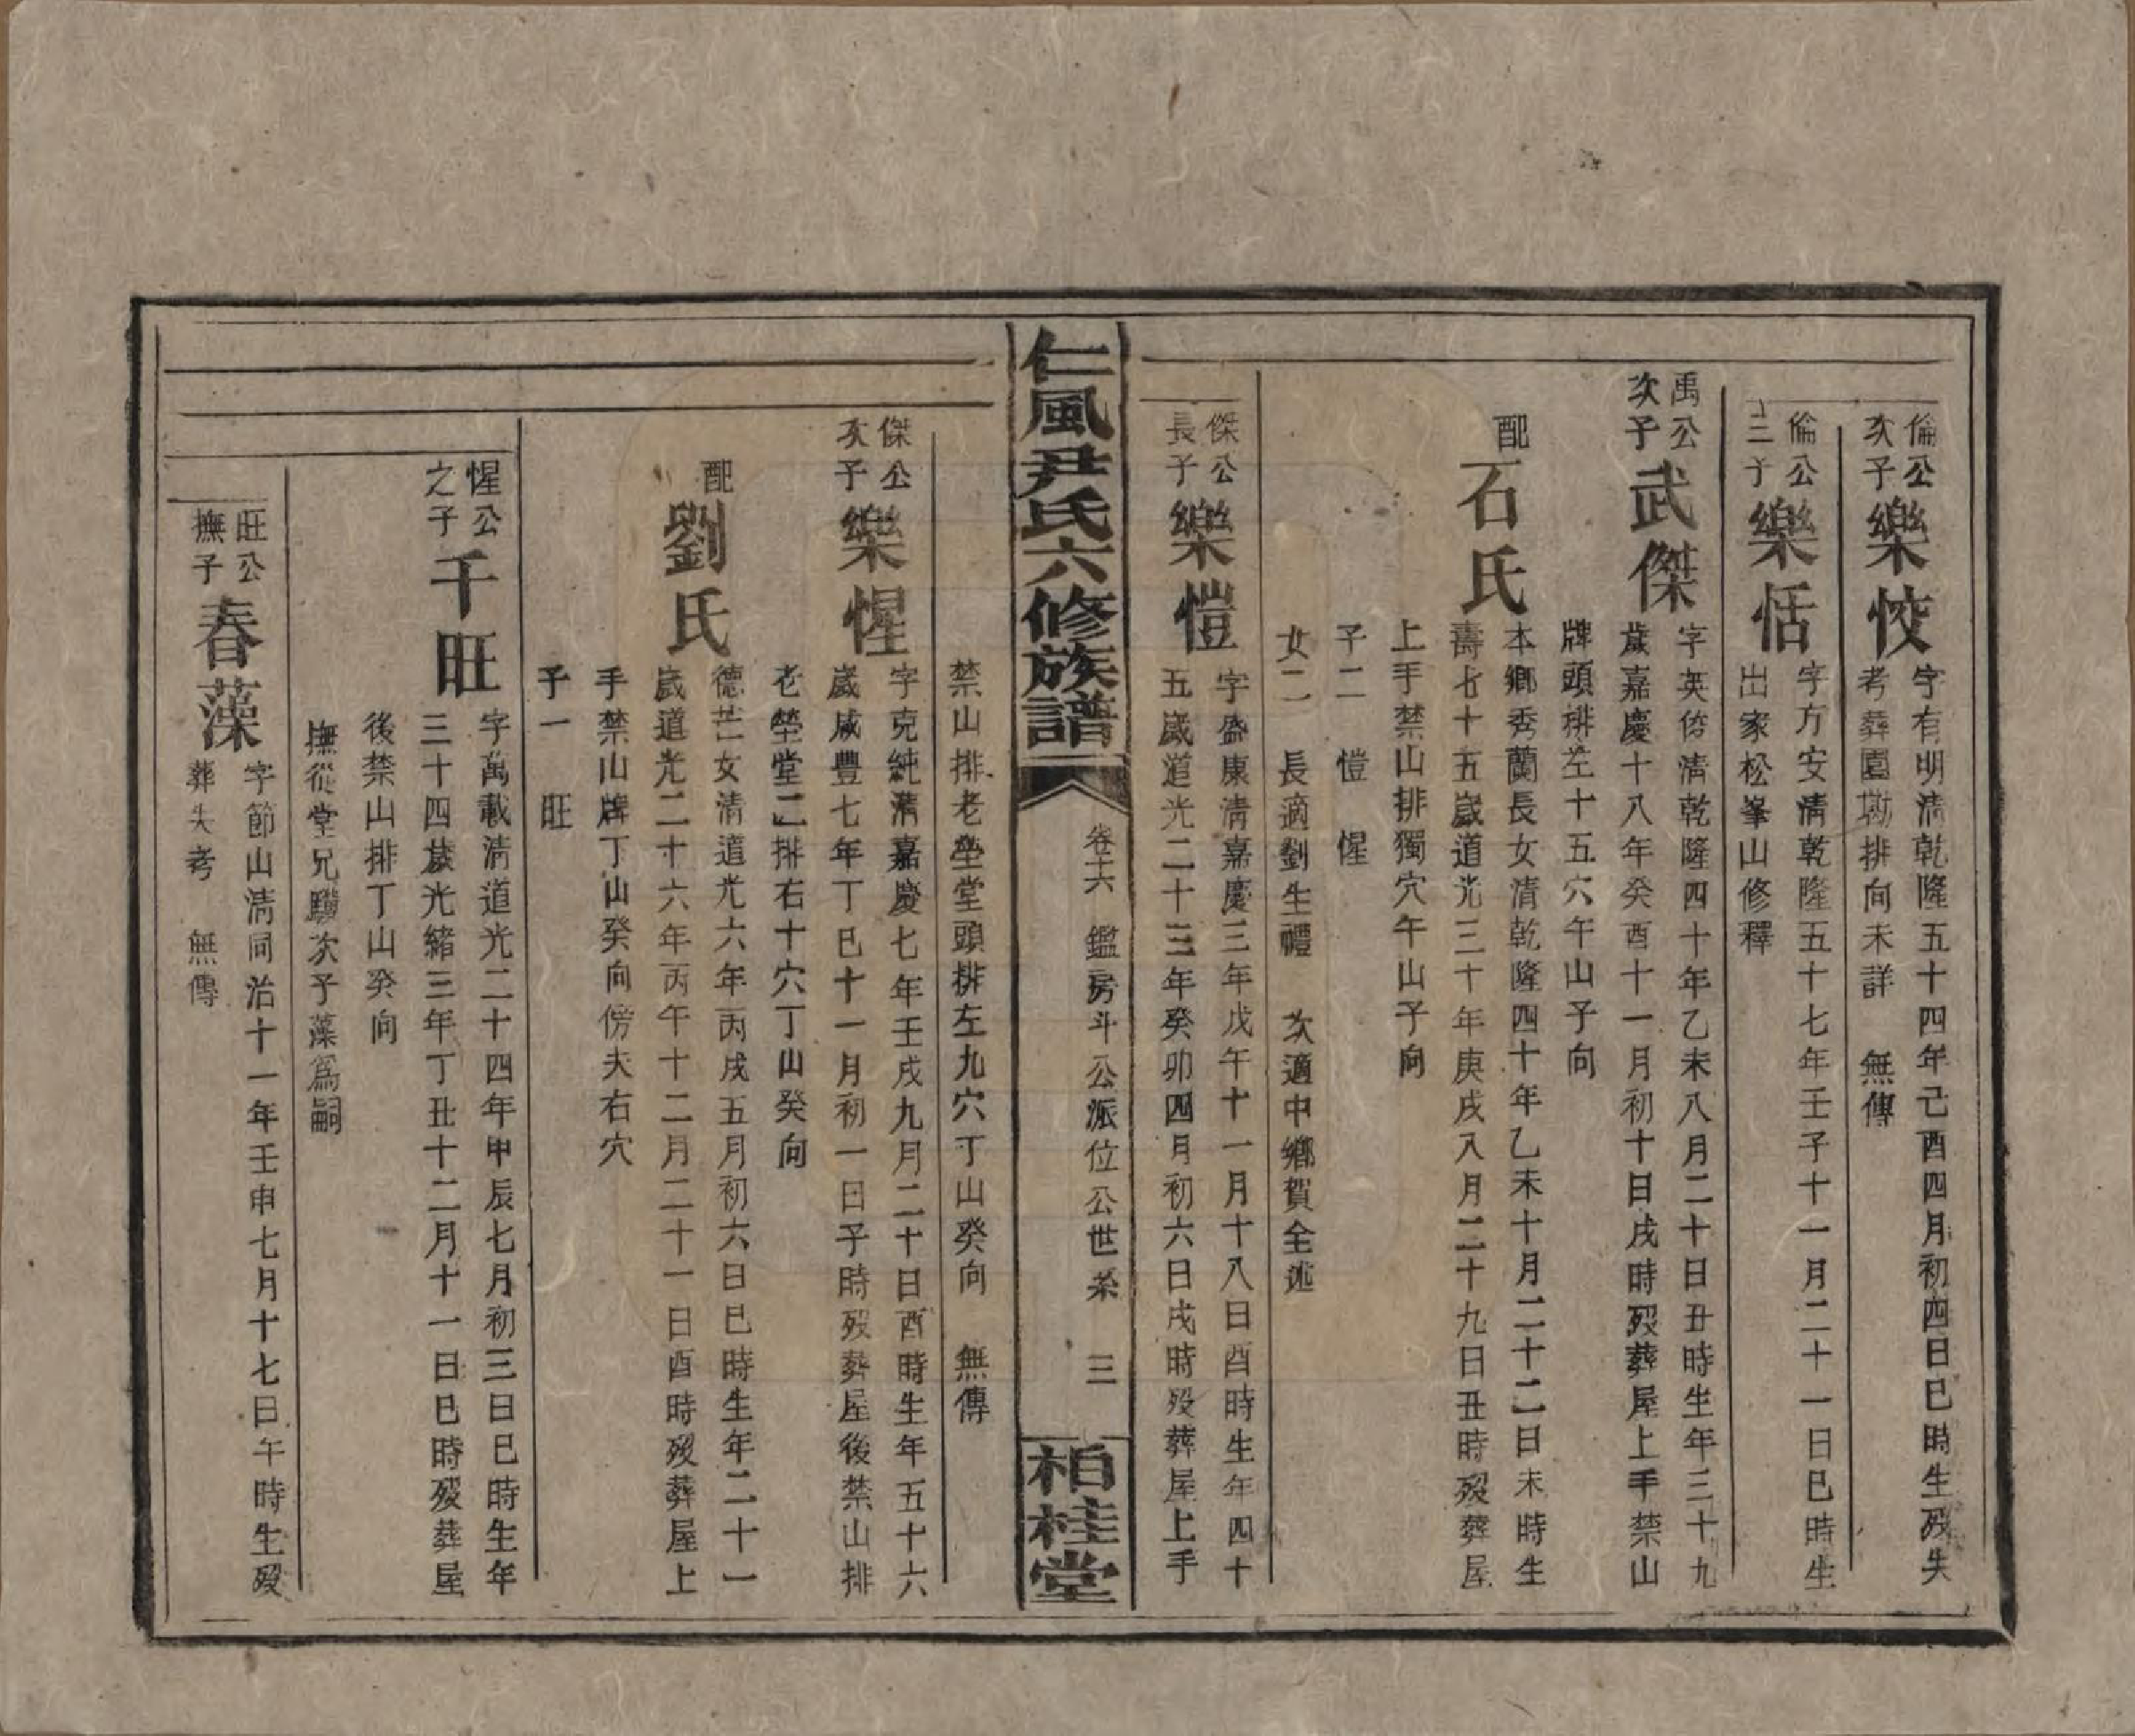 倫公次子樂恔
字有明清乾隆五十四年己酉四月初四日巳時生歿失
考葬園拗排向未詳 無傳
倫公三子樂恬
字方安清乾隆五十七年壬子十一月二十一日巳時生
出家松峯山修釋
禹公次子武傑
字英偹清乾隆四十年乙未八月二十日丑時生年三十九
歲嘉慶十八年癸酉十一月初十日戌時歿葬屋上手禁山
牌頭排左十五穴午山子向
配石氏
本鄉秀蘭長女清乾隆四十年乙未十月二十二日未時生
壽七十五歲道光三十年庚戌八月二十九日丑時歿葬屋
上手禁山排獨穴午山子向
子二 愷 惺
女二 長適劉生禮 次適中鄉賀全述
傑公長子樂愷
字盛康清嘉慶三年戊午十一月十八日酉時生年四十
五歲道光二十三年癸卯四月初六日戌時歿葬屋上手
仁風尹氏六修族譜
卷十六 鑑房斗公派位公世系 三
柏桂堂
禁山排老塋堂頭排左九穴丁山癸向 無傳
傑公次子樂惺
字克純清嘉慶七年壬戌九月二十日酉時生年五十六
歲咸豐七年丁巳十一月初一日子時歿葬屋後禁山排
老塋堂二排右十穴丁山癸向
配劉氏
德芒女清道光六年丙戌五月初六日巳時生年二十一
歲道光二十六年丙午十二月二十一日酉時歿葬屋上
手禁山牌丁山癸向傍夫右穴
子一 旺
惺公之子千旺
字萬載清道光二十四年甲辰七月初三日巳時生年
三十四歲光緒三年丁丑十二月十一日巳時歿葬屋
後禁山排丁山癸向
撫從堂兄驥次子藻為嗣
旺公撫子春藻
字節山清同治十一年壬申七月十七日午時生歿
葬失考 無傳